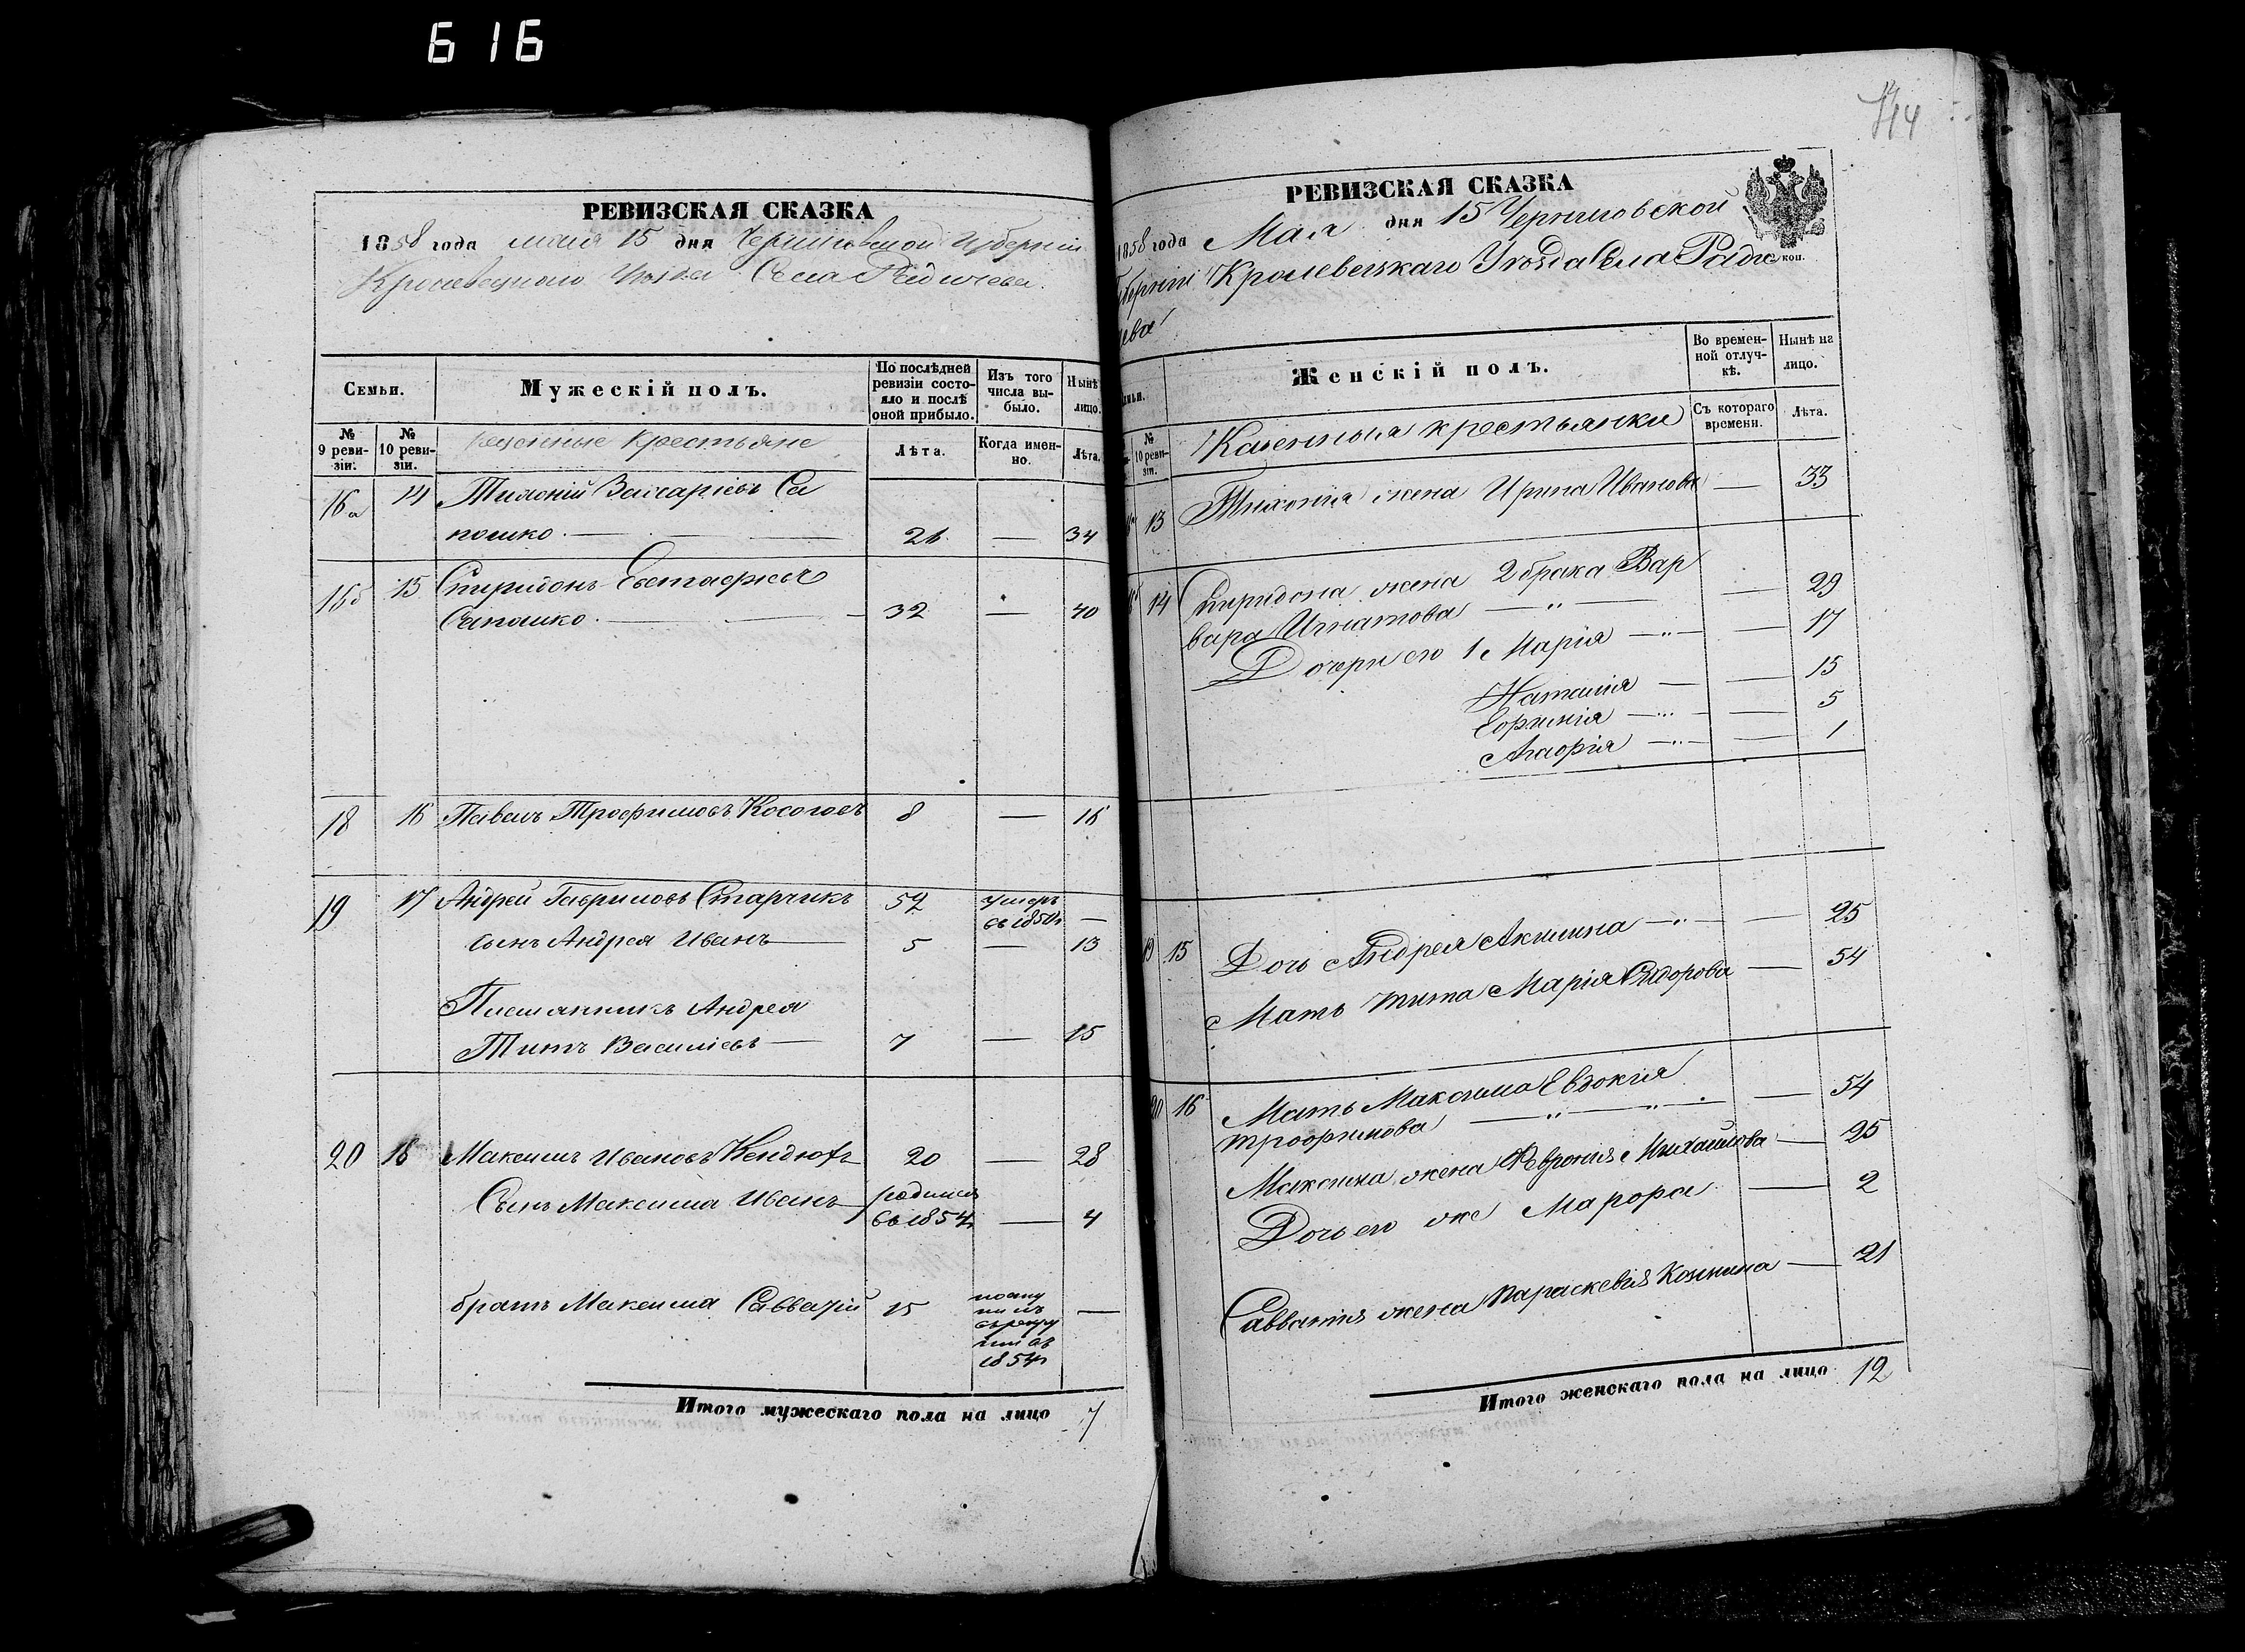 616
РЕВИЗСКАЯ СКАЗКА
1858 года мая 15 дня Черниговской Губерніи
Кролевецкого Уѣзда Села Радичева.
Семьи.
Мужескій полъ.
По послѣдней ревизіи состояло и послѣ оной прибыло.
Изъ того числа выбыло.
Нынѣ лицо.
№ 9 ревизіи.
№ 10 ревизіи.
казенные крестьяне
Лѣта.
Когда именно.
Лѣта.
16а 14 Тихоній Захаріевъ Са
пошко — 26 — 34
16б 15 Спиридонъ Евстафіевъ
Сапошко — 32 — 40
18 16 Павелъ Трофимовъ Косогов 8 — 16
19 17 Андрей Гавриловъ Старчикъ 52 умеръ въ 1850г —
сынъ Андрея Иванъ — 5 — 13
Племянникъ Андрея
Титъ Василіевъ — 7 — 15
20 18 Максимъ Ивановъ Кендюхъ 20 — 28
Сынъ Максима Иванъ родился въ 1854г — 4
братъ Максима Савватій 15 посту
пилъ
въ рекру
ты въ
1854г —
Итого мужескаго пола на лицо 7
РЕВИЗСКАЯ СКАЗКА
1858 года Мая дня 15 Черниговской
Губерніи Кролевецкаго Уѣзда Села Ради
чева
коп.
Женскій полъ.
Во временной отлучкѣ.
Нынѣ на лицо.
№ 10 ревизіи.
Казенныя крестьянки
Съ котораго времени.
Лѣта.
13 Тихонія жена Ирина Иванова — 33
14 Спиридона жена 2 брака Вар
вара Игнатова — " — — 29
Дочри его 1 Марія — " — — 17
Наталія — — 15
Ефимія — " — — 5
Агафія — " — — 1
19 15 Дочь Андрея Акилина — " — — 25
Мать Тита Марія Сидорова — 54
20 16 Мать Максима Евдокія
Трофимова — " — " — — 54
Максима жена Февронія Михайлова — 25
Дочь его же Марфа — 2
Савватія жена Параскевія Козьмина — 21
Итого женскаго пола на лицо 12